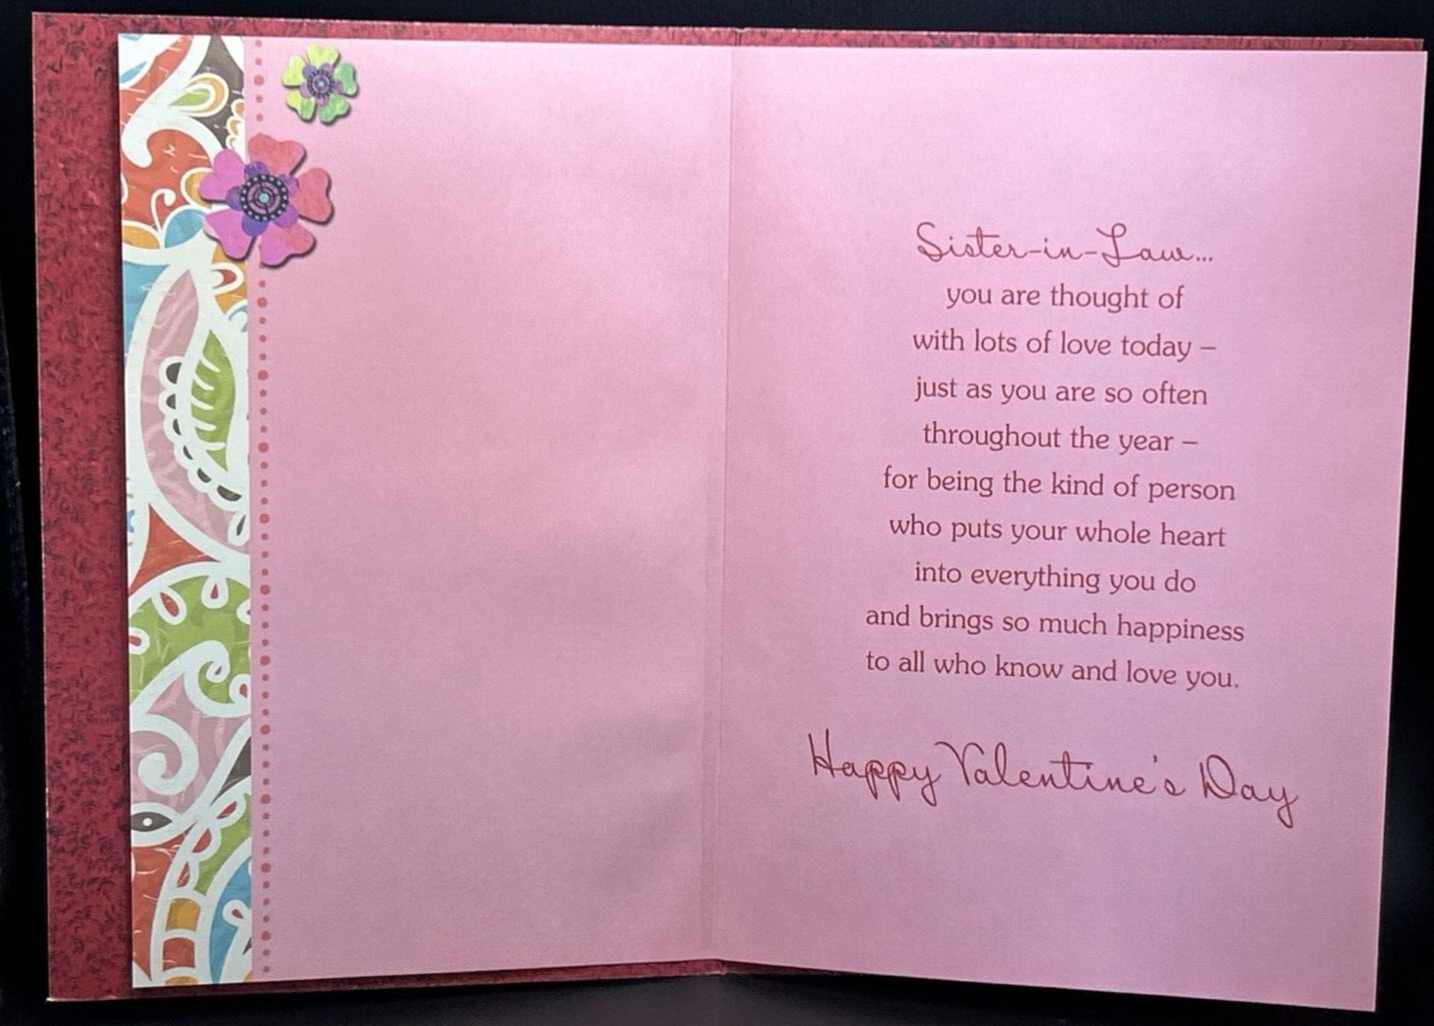 Sister-in-Law...
you are thought of
with lots of love today –
just as you are so often
throughout the year –
for being the kind of person
who puts your whole heart
into everything you do
and brings so much happiness
to all who know and love you.
Happy Valentine's Day